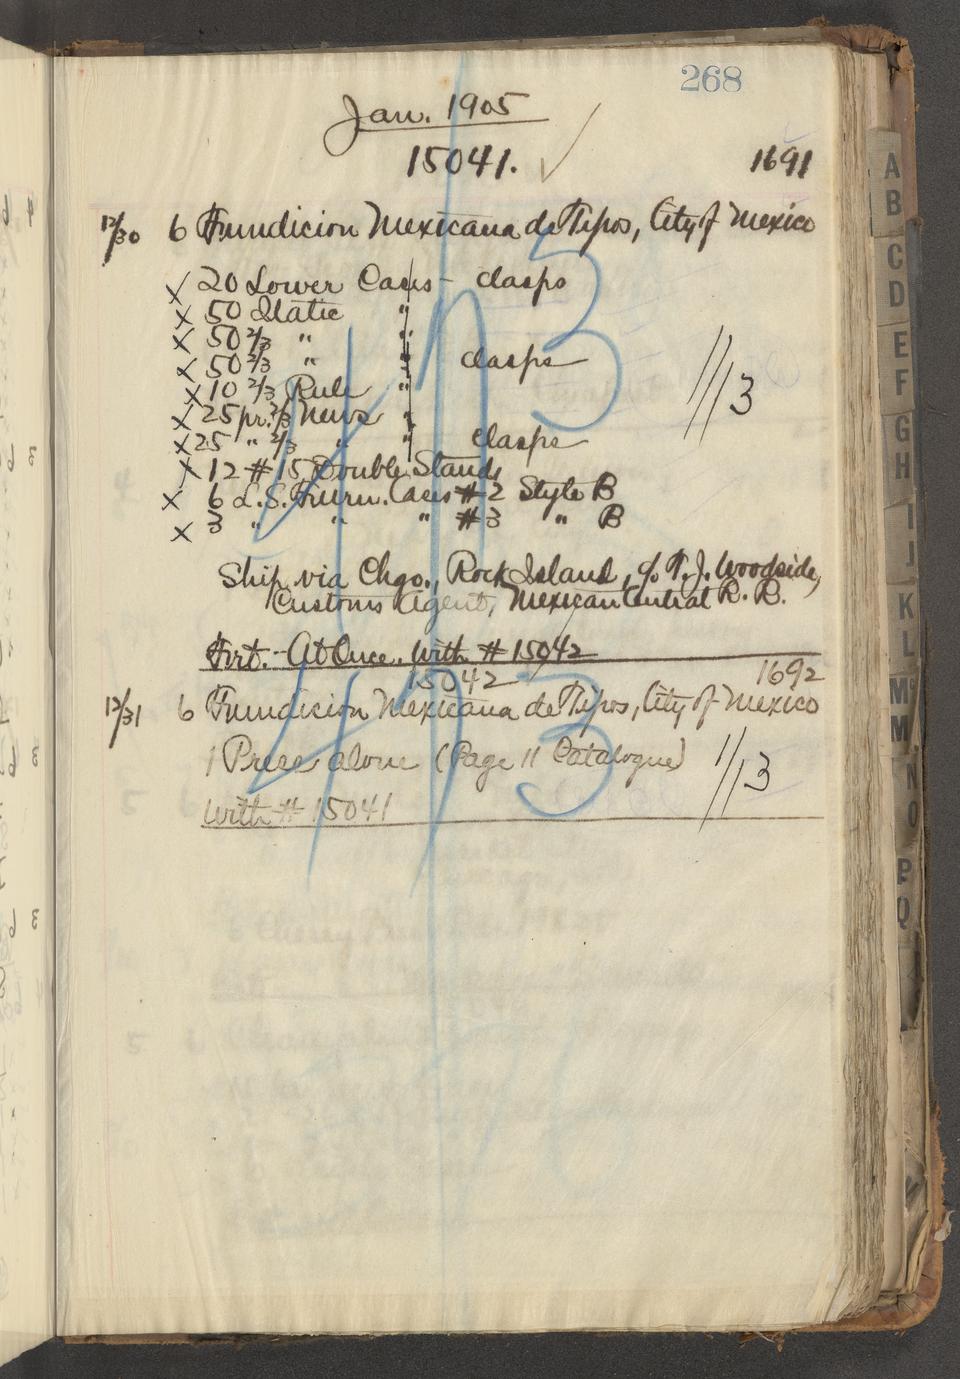 268
Jan. 1905
15041. ✓ 1691
12/30 6 Fundicion Mexicana de Tipos, City of Mexico
X 20 Lower Cases - clasps
X 50 Italic "
X 50 2/3 " "
X 50 2/3 " " clasps
X 10 2/3 Rule "
X 25 pr. 2/3 News "
X 25 " 2/3 " " clasps
X 12 #15 Double Stands
X 6 L.S. Furn. Cases #2 Style B
X 3 " " " #3 " B
1/13
Ship via Chgo., Rock Island, c/o T.J. Woodside,
Customs Agent, Mexican Central R. R.
Frt. - At Once. With #15042
15042 1692
12/31 6 Fundicion Mexicana de Tipos, City of Mexico
1 Press alone (Page 11 Catalogue) 1/13
With #15041
1/13
1/13
A
B
C
D
E
F
G
H
I
J
K
L
Mc
M
N
O
P
Q